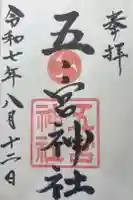 奉拝
五宮神社
令和七年八月十二日